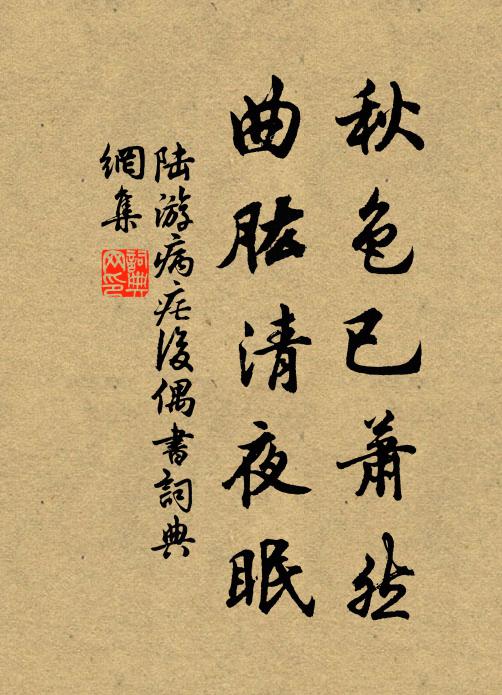 秋色已萧然
曲肱清夜眠
陆游病疟后偶書詞典
網集
詞典网印